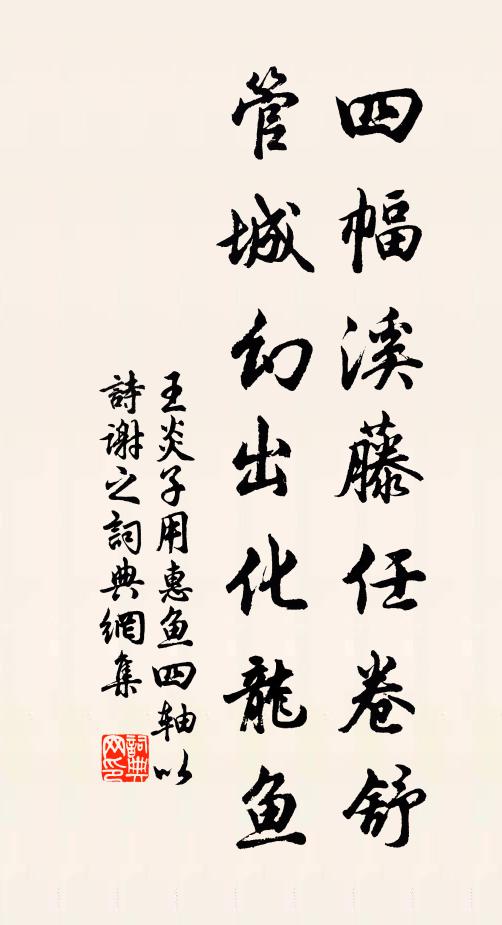 四幅溪藤任卷舒
管城幻出化龍鱼
王炎子用惠鱼四轴以
詩谢之詞典網集
詞典網印